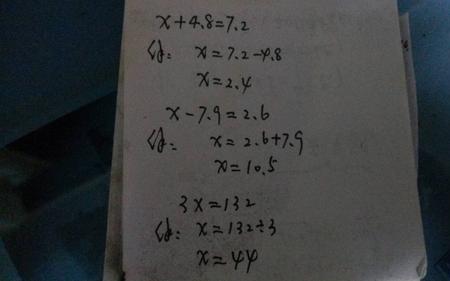 x+4.8=7.2
解：x=7.2-4.8
x=2.4
x-7.9=2.6
解：x=2.6+7.9
x=10.5
3x=132
解：x=132÷3
x=44